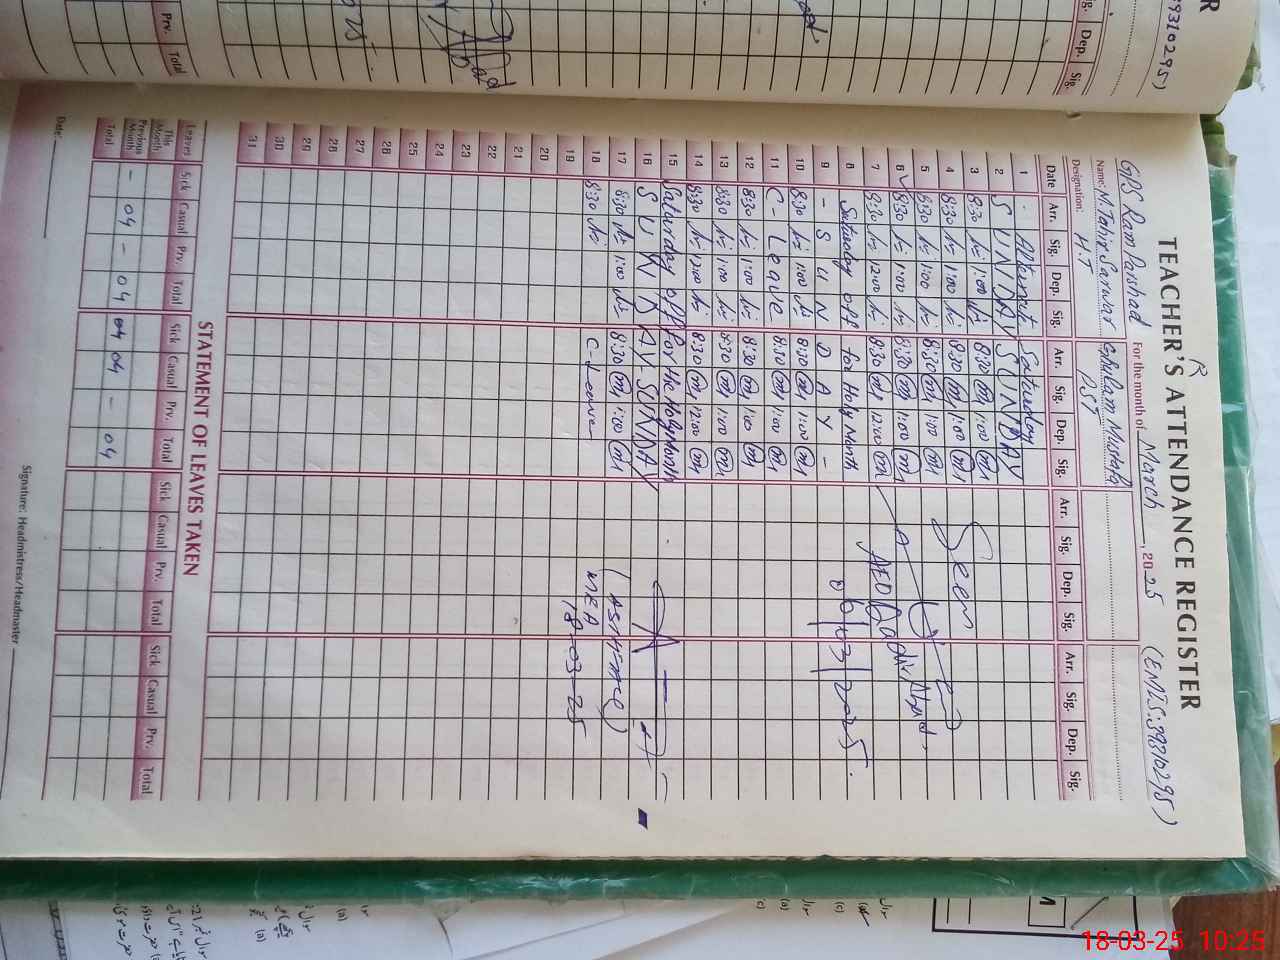 TEACHER'S ATTENDANCE REGISTER
GPS Ram Parshad For the month of March, 2025 (EMIS:39310295)
Name: M. Tahir Sarwar Ghulam Mustafa
Designation: H.T PST
Date Arr. Sig. Dep. Sig. Arr. Sig. Dep. Sig. Arr. Sig. Dep. Sig. Arr. Sig. Dep. Sig.
1 Alternate Saturday
2 S U N D A Y S U N D A Y
3 8:30 1:00 8:30 1:00
4 8:30 1:00 8:30 1:00
5 8:30 1:00 8:30 1:00
6 8:30 1:00 8:30 1:00
7 8:30 12:00 8:30 12:00
8 Saturday off for Holy Month
9 - S U N D A Y -
10 8:30 1:00 8:30 1:00
11 C - Leave 8:30 1:00
12 8:30 1:00 8:30 1:00
13 8:30 1:00 8:30 1:00
14 8:30 12:00 8:30 12:00
15 Saturday off For the Holy Month
16 S U N D A Y - S U N D A Y
17 8:30 1:00 8:30 1:00
18 8:30 C-Leave
19
20
21
22
23
24
25
26
27
28
29
30
31
Seen
AEO
03/2025
MEA
18-03-25
STATEMENT OF LEAVES TAKEN
Leaves Sick Casual Prv. Total Sick Casual Prv. Total Sick Casual Prv. Total Sick Casual Prv. Total
This Month
Previous Month
Total - 04 - 04 04 04 - 04
Date:
Signature: Headmistress/Headmaster
R
39310295)
Dep. Sig.
Prv. Total
18-03-25 10:25